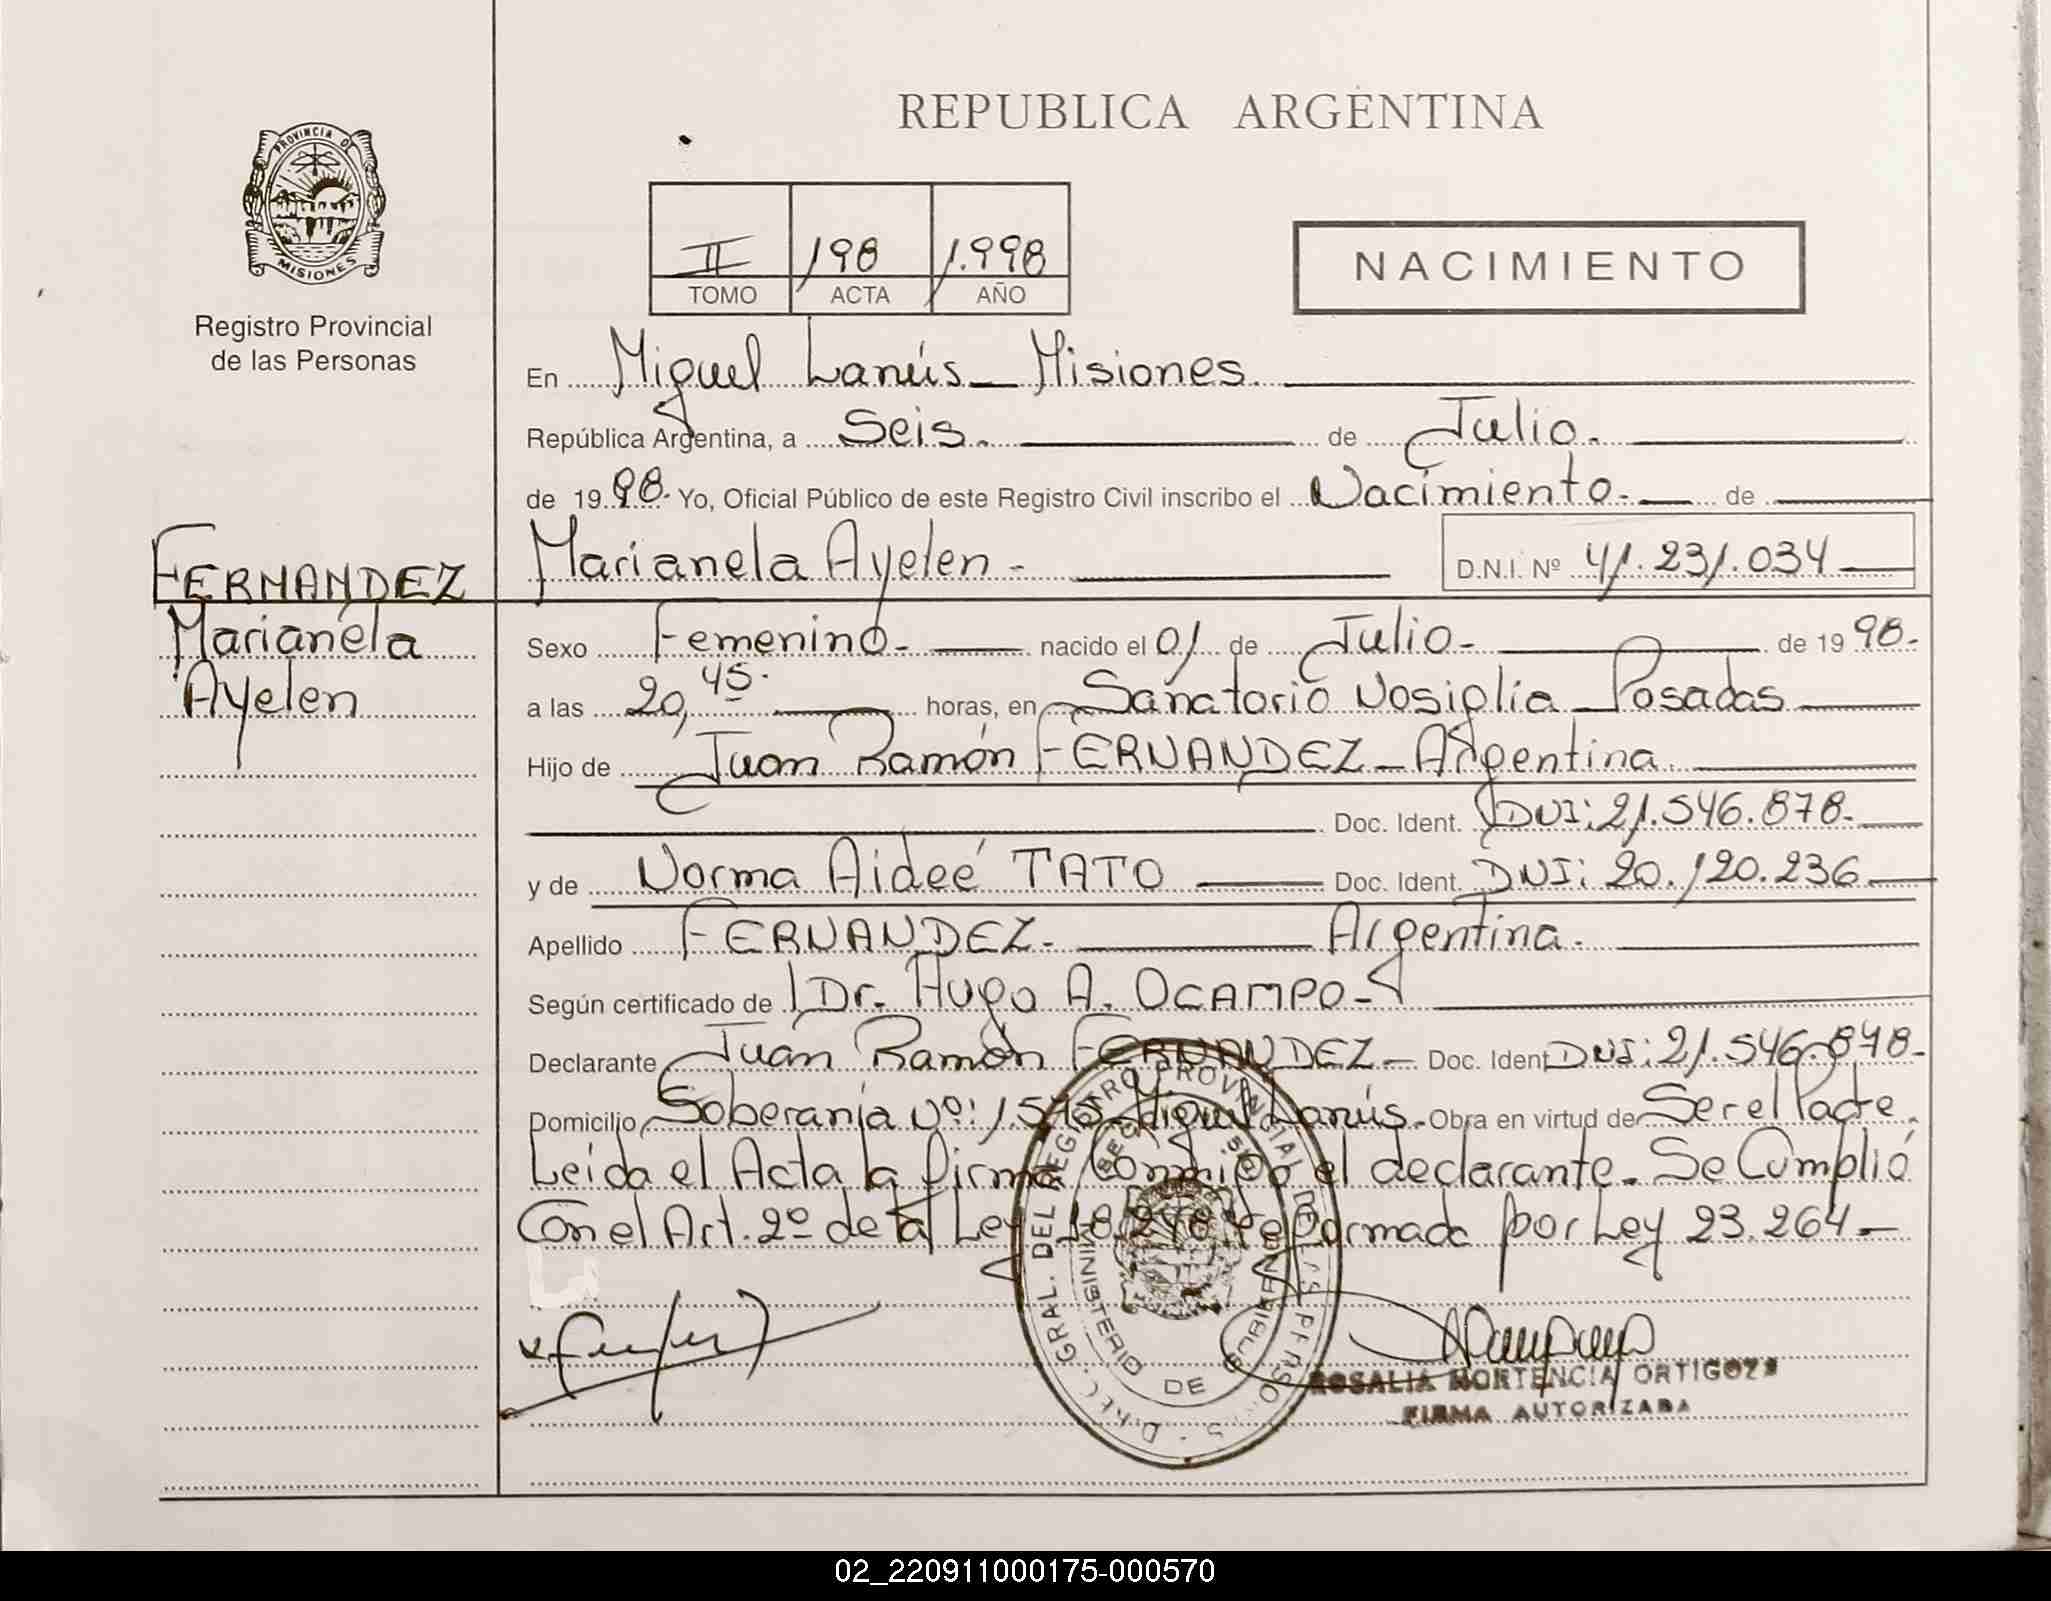 REPUBLICA ARGENTINA
PROVINCIA DE
MISIONES
Registro Provincial
de las Personas
II 198 1.998
TOMO ACTA AÑO
NACIMIENTO
En Miguel Lanús_ Misiones.
República Argentina, a Seis. de Julio.
de 1998. Yo, Oficial Público de este Registro Civil inscribo el Nacimiento.- de
FERNANDEZ
Marianela
Ayelen
Marianela Ayelen - D.N.I. Nº 41.231.034
Sexo Femenino- nacido el 01 de Julio- de 1998.
a las 20,45. horas, en Sanatorio Nosiglia_Posadas
Hijo de Juan Ramón FERNANDEZ_Argentina.
Doc. Ident. DNI: 21.546.878.
y de Norma Aideé TATO Doc. Ident. DNI: 20.120.236
Apellido FERNANDEZ- Argentina.
Según certificado de Dr. Hugo A. OCAMPO-
Declarante Juan Ramón FERNANDEZ- Doc. Ident DNI: 21.546.878-
Domicilio Soberanía Nº: Miguel Lanús. Obra en virtud de Ser el Padre.
Leída el Acta la firma Conmigo el declarante. Se Cumplió
Con el Art. 2º de la Ley 18.248 reformada por Ley 23.264-
GRAL. DEL REGISTRO PROVINCIAL DE LAS PERSONAS
MINISTERIO DE GOBIERNO
ROSALIA HORTENCIA ORTIGOZA
FIRMA AUTORIZADA
02_220911000175-000570